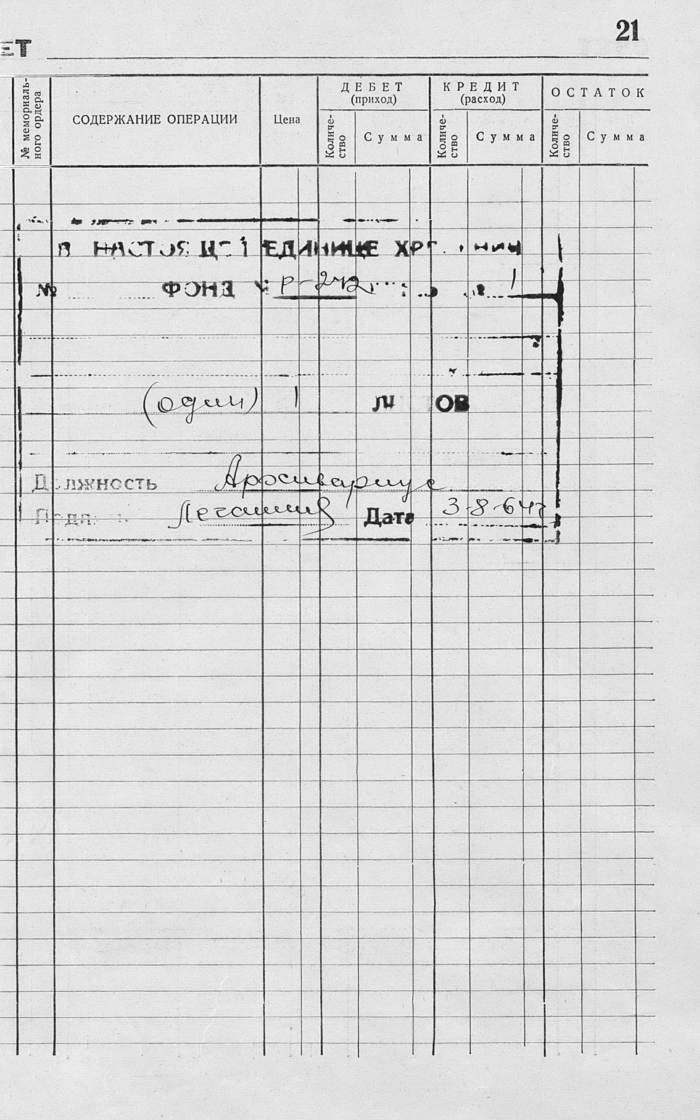 21
ЕТ
№ мемориаль-
ного ордера
СОДЕРЖАНИЕ ОПЕРАЦИИ
Цена
ДЕБЕТ
(приход)
Количе-
ство
Сумма
КРЕДИТ
(расход)
Количе-
ство
Сумма
ОСТАТОК
Количе-
ство
Сумма
В НАСТОЯЩЕЙ ЕДИНИЦЕ ХРАНЕНИЯ
№ ФОНД № Р-242 1
(один) 1 ЛИСТОВ
Должность Архивариус
Подпись Дата 3-8-64г